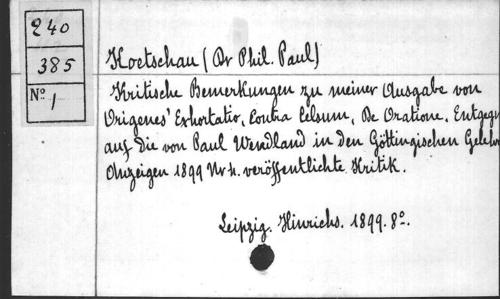 240
385
Nº 1
Koetschau (Dr Phil. Paul)
Kritische Bemerkungen zu meiner Ausgabe von
Origenes' Exhortatio, Contra Celsum, De Oratione. Entgegn
auf die von Paul Wendland in den Göttingischen Gelehr
Anzeigen 1899 Nr 4. veröffentlichte Kritik.
Leipzig. Hinrichs. 1899. 8º.